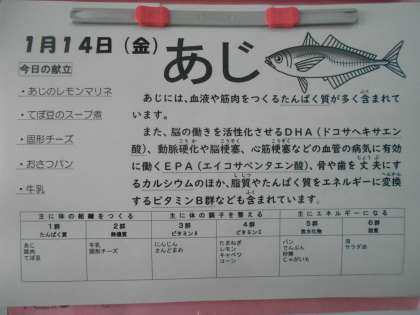 1月14日(金) あじ
今日の献立
・あじのレモンマリネ
・てぼ豆のスープ煮
・固形チーズ
・おさつパン
・牛乳
あじには、血液や筋肉をつくるたんぱく質が多く含まれて
います。
また、脳の働きを活性化させるDHA(ドコサヘキサエン
酸)、動脈硬化や脳梗塞、心筋梗塞などの血管の病気に有効
に働くEPA(エイコサペンタエン酸)、骨や歯を丈夫にす
るカルシウムのほか、脂質やたんぱく質をエネルギーに変換
するビタミンB群なども含まれています。
主に体の組織をつくる 主に体の調子を整える 主にエネルギーになる
1群 2群 3群 4群 5群 6群
たんぱく質 無機質 ビタミンA ビタミンC 炭水化物 脂質
あじ 牛乳 にんじん たまねぎ パン 油
鶏肉 固形チーズ さんどまめ レモン でんぷん サラダ油
てぼ豆 キャベツ 砂糖
コーン じゃがいも